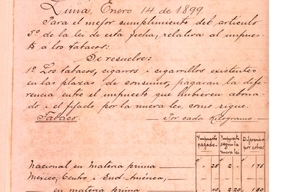 Lima, Enero 14 de 1899.
Para el mejor cumplimiento del articulo
5º de la ley de esta fecha, relativa al impues-
to á los tabacos;
Se resuelve:
1º Los tabacos, cigarros i cigarrillos existentes
en las plazas de consumo, pagarán la dife-
rencia entre el impuesto que hubieren abona-
do i el fijado por la nueva ley, como sigue.
Tabaco — Por cada Kilogramo
Impuesto pagado Impuesto según la nueva ley Diferencia por cobrar
Nacional en materia prima
México, Centro i Sud América,
en materia prima